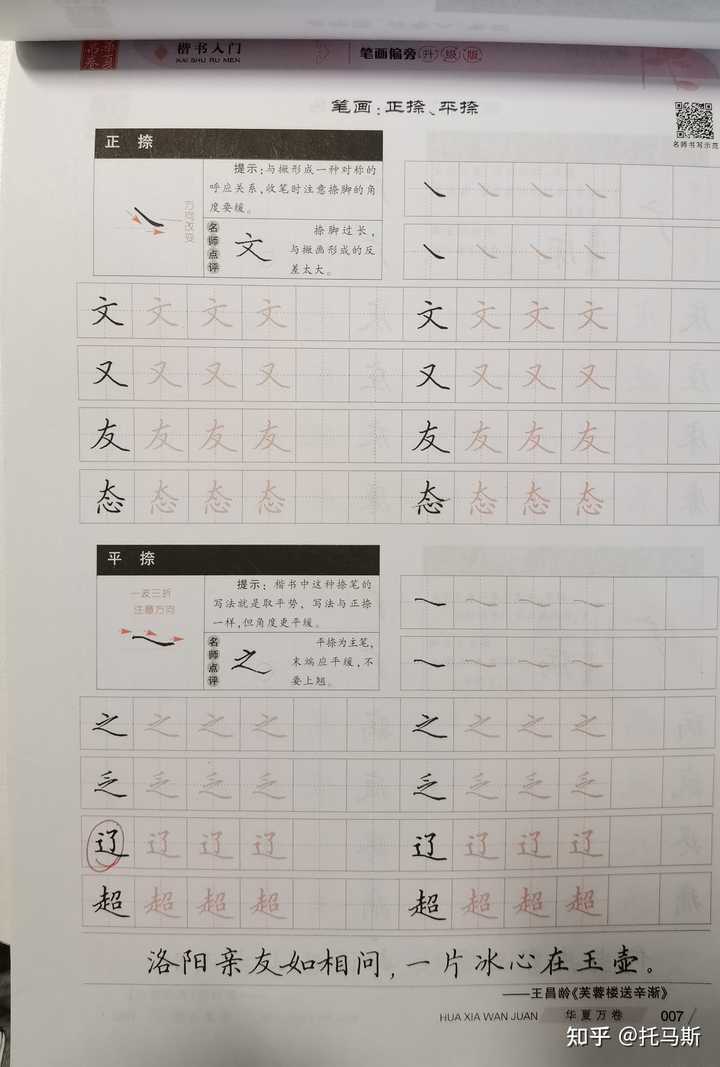 华夏万卷
楷书入门
KAI SHU RU MEN
笔画偏旁升级版
笔画:正捺、平捺
名师书写示范
正 捺
方向改变
提示:与撇形成一种对称的
呼应关系,收笔时注意捺脚的角
度要缓。
名师点评
文
捺脚过长,
与撇画形成的反
差太大。
文 文 文 文 文 文 文 文
又 又 又 又 又 又 又 又
友 友 友 友 友 友 友 友
态 态 态 态 态 态 态 态
平 捺
一波三折
注意方向
提示:楷书中这种捺笔的
写法就是取平势,写法与正捺
一样,但角度更平缓。
名师点评
之
平捺为主笔,
末端应平缓,不
要上翘。
之 之 之 之 之 之 之 之
乏 乏 乏 乏 乏 乏 乏 乏
辽 辽 辽 辽 辽 辽 辽 辽
超 超 超 超 超 超 超 超
洛阳亲友如相问,一片冰心在玉壶。
——王昌龄《芙蓉楼送辛渐》
HUA XIA WAN JUAN 华夏万卷 007
知乎 @托马斯